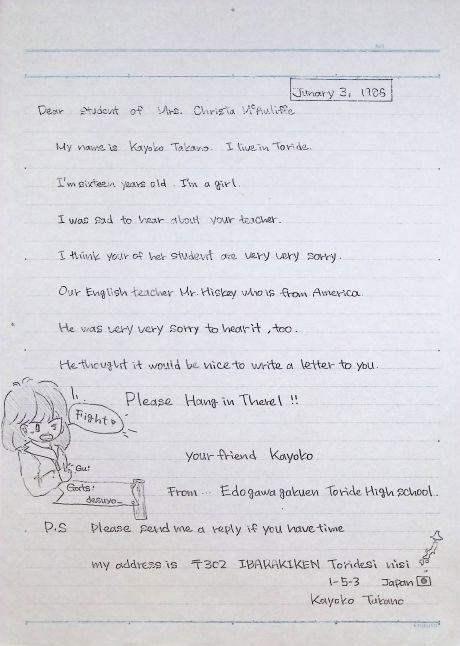 Junary 3, 1986
Dear student of Mrs. Christa McAuliffe
My name is Kayoko Takano. I live in Toride.
I'm sixteen years old. I'm a girl.
I was sad to hear about your teacher.
I think your of her student are very very sorry.
Our English teacher Mr. Hiskey who is from America.
He was very very sorry to hear it, too.
He thought it would be nice to write a letter to you.
Please Hang in There! !!
Fight
your friend Kayoko
Gu!
desuyo
From… Edogawagakuen Toride High school.
P.S Please send me a reply if you have time
my address is 〒302 IBARAKIKEN Toridesi nisi
1-5-3 Japan
Kayoko Takano